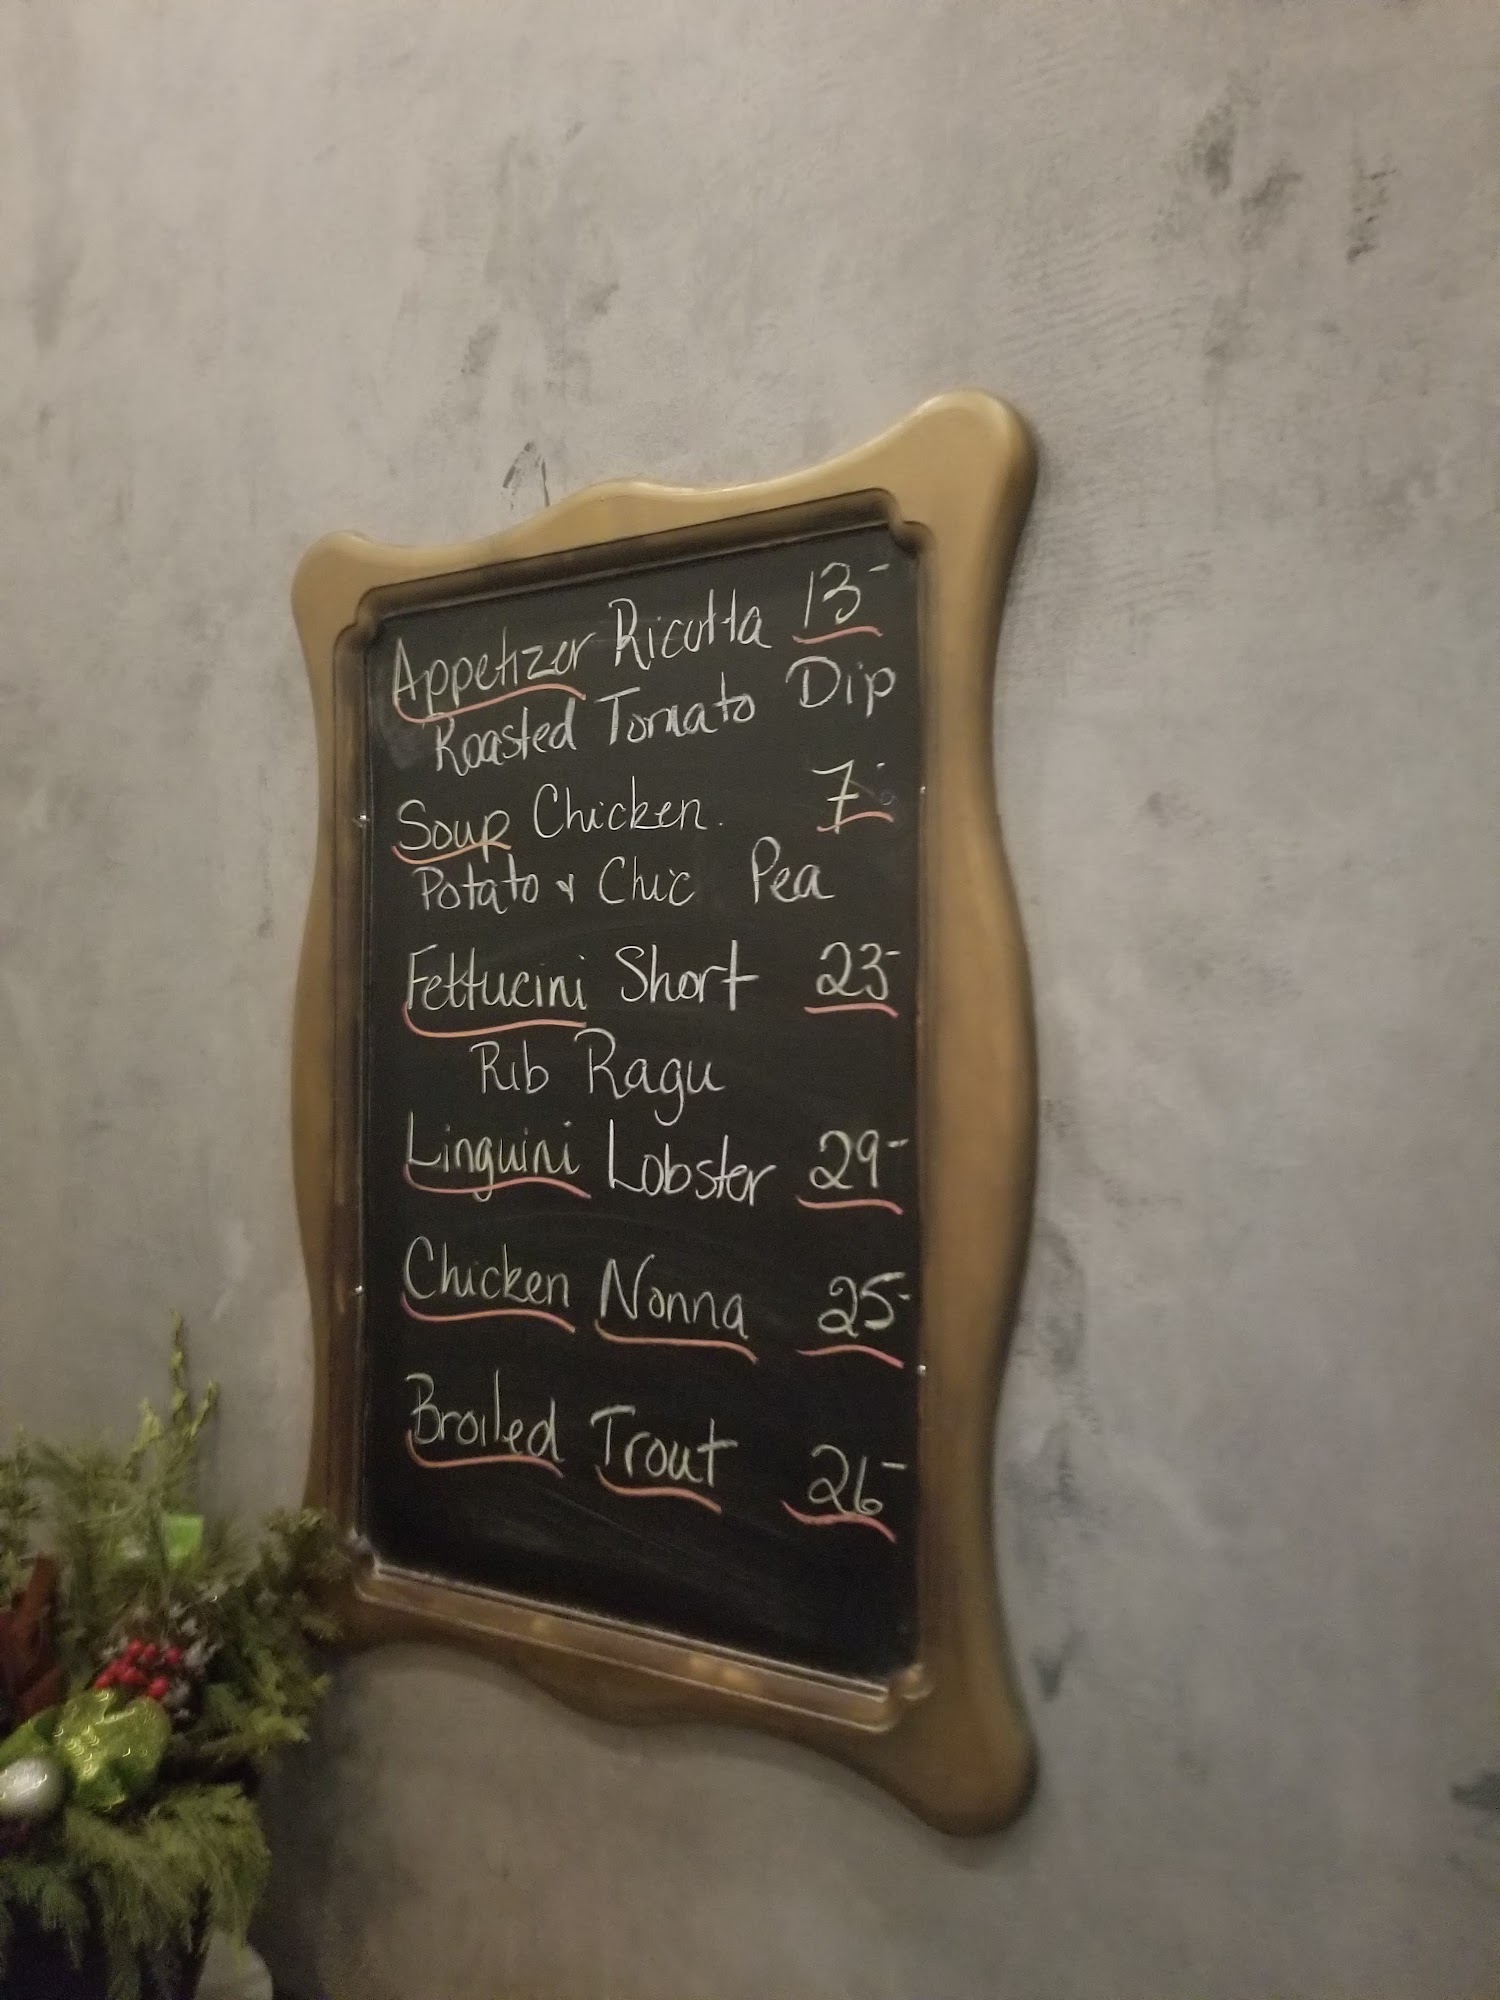 Appetizer Ricotta 13-
Roasted Tomato Dip
Soup Chicken. 7-
Potato & Chic Pea
Fettucini Short 23-
Rib Ragu
Linguini Lobster 29-
Chicken Nonna 25-
Broiled Trout 26-